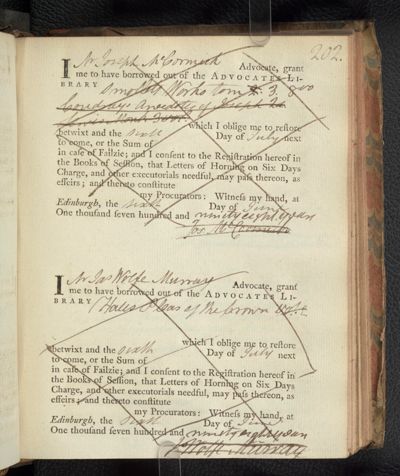 202.
I Mr Joseph McCormick Advocate, grant
me to have borrowed out of the ADVOCATES LI-
BRARY Arnolds Works tom 3. 8vo
Anecdotes of Joseph 2d
which I oblige me to restore
betwixt and the sixth Day of July next
to come, or the Sum of
in case of Failzie; and I consent to the Registration hereof in
the Books of Session, that Letters of Horning on Six Days
Charge, and other executorials needful, may pass thereon, as
effeirs; and thereto constitute
my Procurators: Witness my hand, at
Edinburgh, the sixth Day of June
One thousand seven hundred and ninety eight years
Jos. McCormick
I Mr Jas Wolfe Murray Advocate, grant
me to have borrowed out of the ADVOCATES LI-
BRARY Hales Pleas of the Crown
which I oblige me to restore
betwixt and the sixth Day of July next
to come, or the Sum of
in case of Failzie; and I consent to the Registration hereof in
the Books of Session, that Letters of Horning on Six Days
Charge, and other executorials needful, may pass thereon, as
effeirs; and thereto constitute
my Procurators: Witness my hand, at
Edinburgh, the sixth Day of June
One thousand seven hundred and ninety eight years
J Wolfe Murray